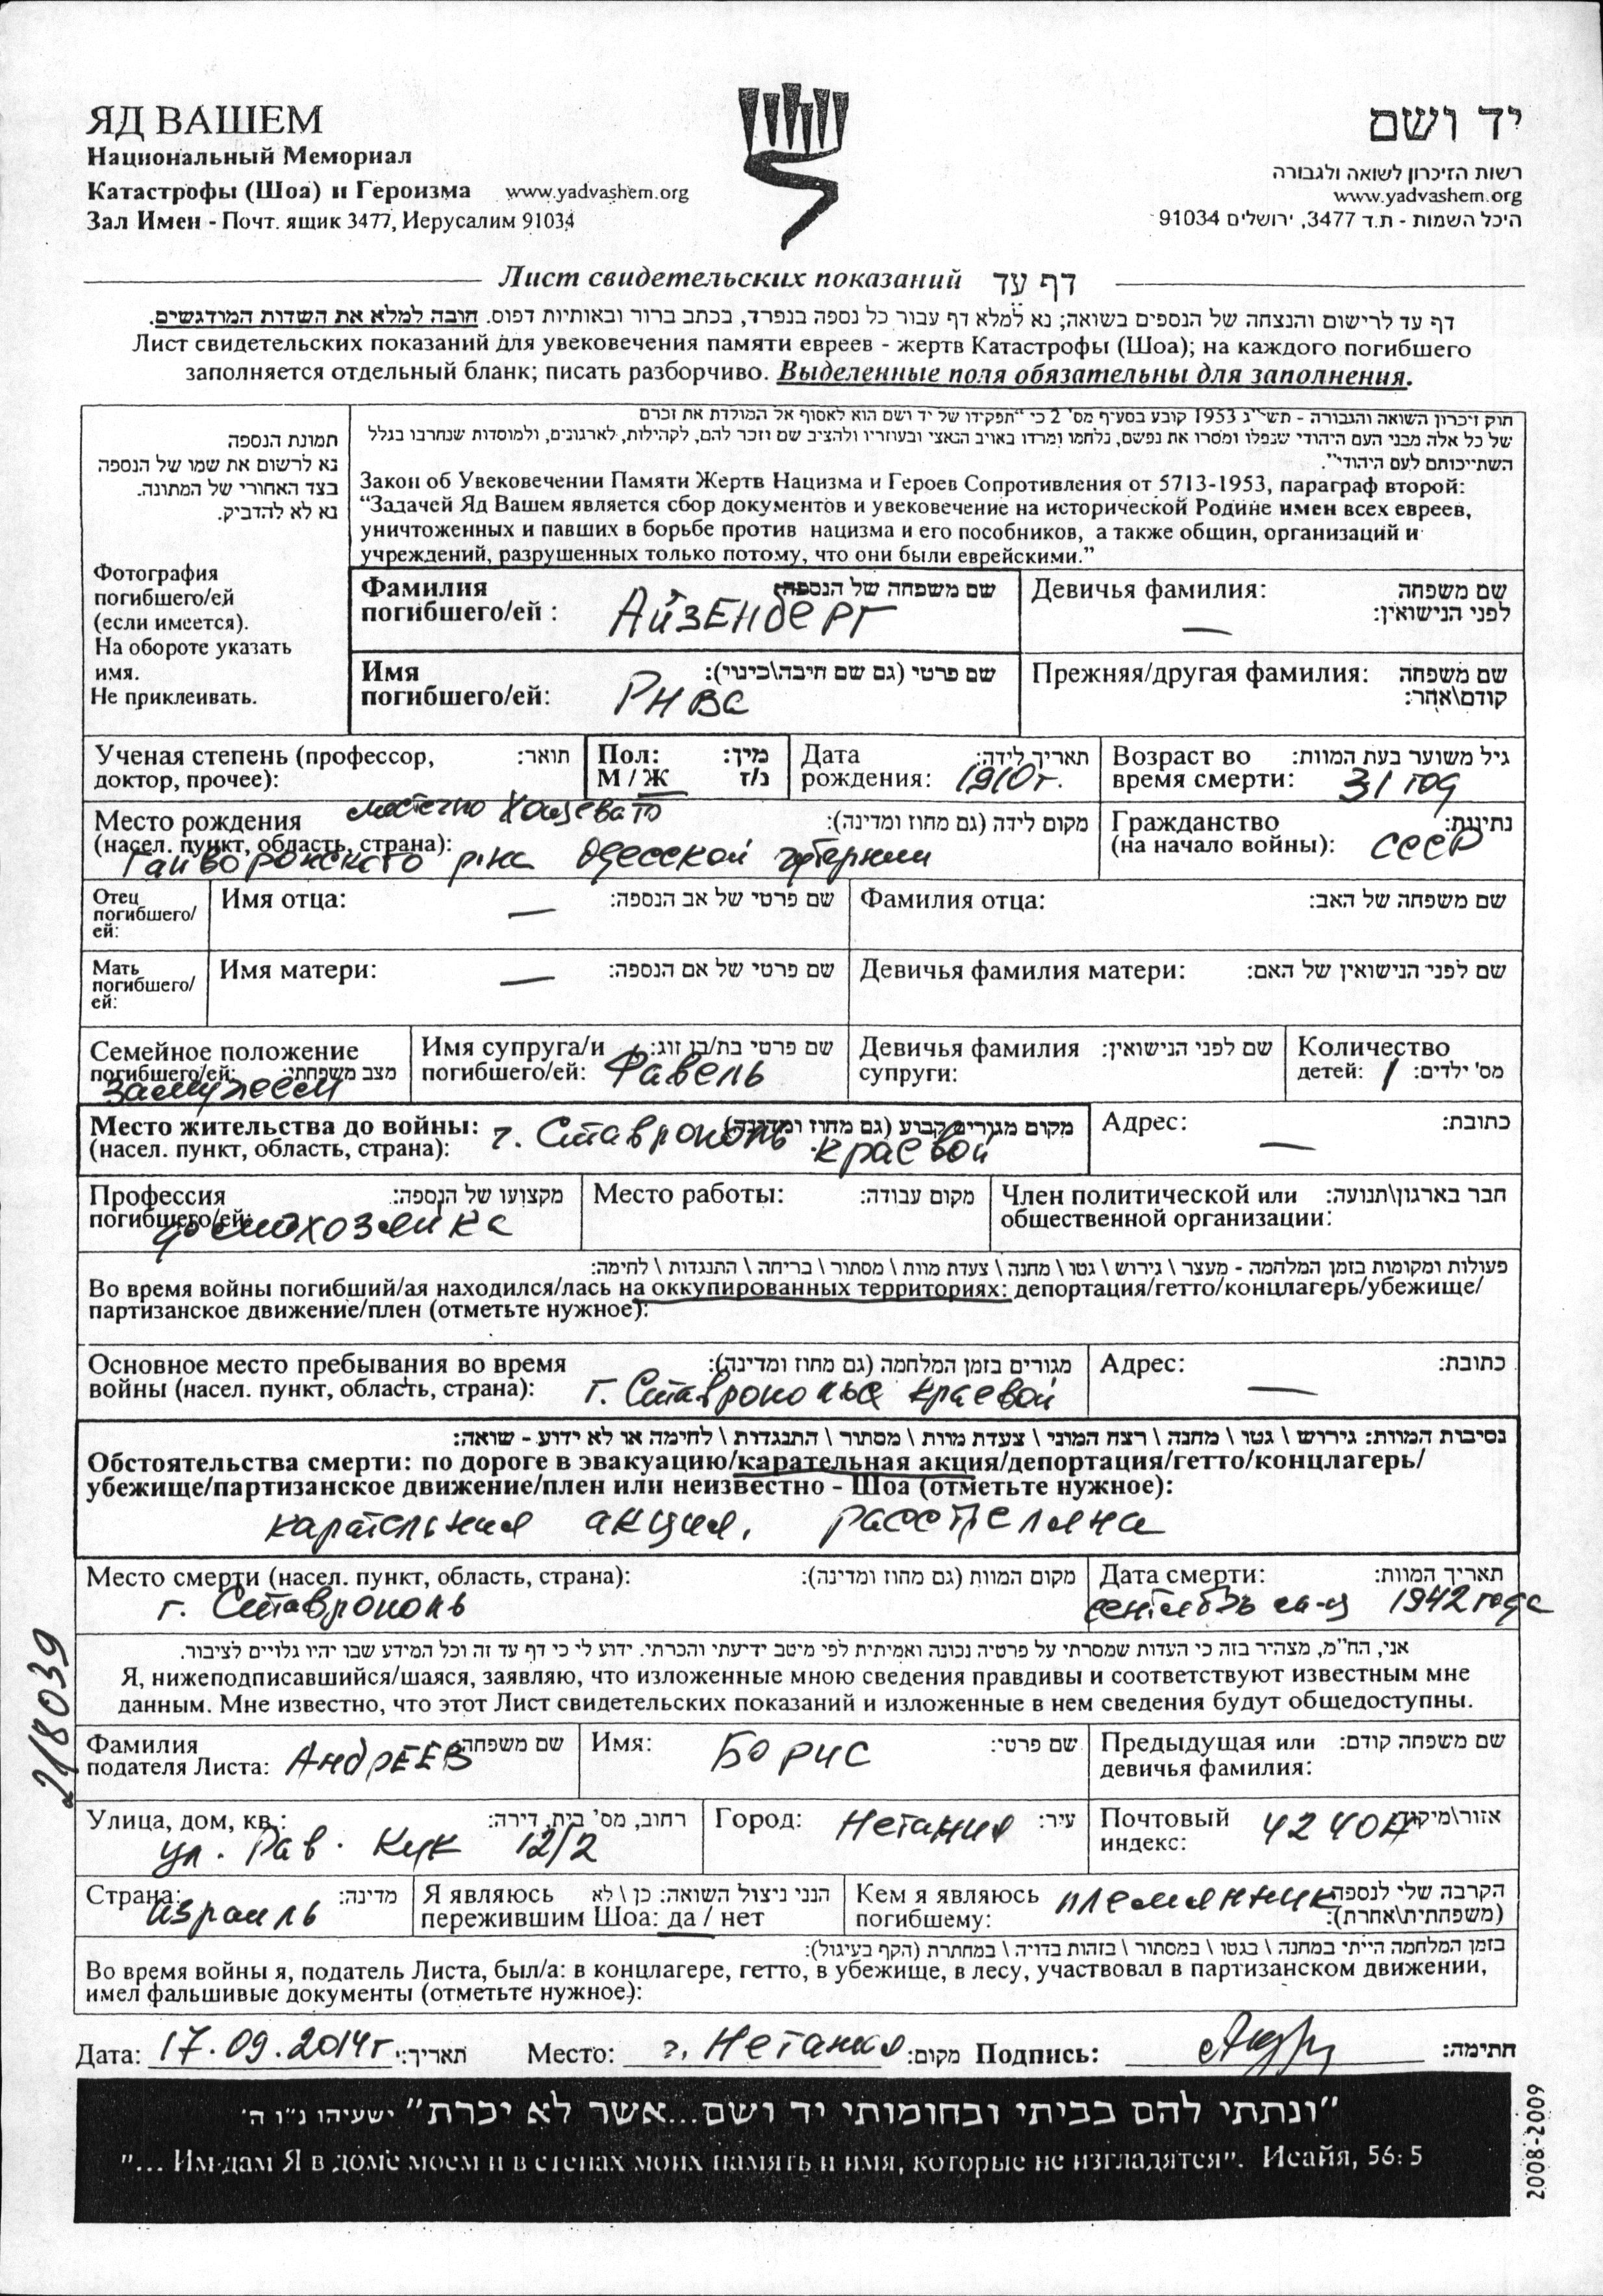 ЯД ВАШЕМ
Национальный Мемориал
Катастрофы (Шоа) и Героизма www.yadvashem.org
Зал Имен - Почт. ящик 3477, Иерусалим 91034
יד ושם
רשות הזיכרון לשואה ולגבורה
www.yadvashem.org
היכל השמות - ת.ד 3477, ירושלים 91034
Лист свидетельских показаний דף עד
דף עד לרישום והנצחה של הנספים בשואה; נא למלא דף עבור כל נספה בנפרד, בכתב ברור ובאותיות דפוס. חובה למלא את השדות המודגשים.
Лист свидетельских показаний для увековечения памяти евреев - жертв Катастрофы (Шоа); на каждого погибшего
заполняется отдельный бланк; писать разборчиво. Выделенные поля обязательны для заполнения.
תמונת הנספה
נא לרשום את שמו של הנספה
בצד האחורי של המתונה.
נא לא להדביק.
Фотография
погибшего/ей
(если имеется).
На обороте указать
имя.
Не приклеивать.
חוק זיכרון השואה והגבורה - תשי"ג 1953 קובע בסעיף מס' 2 כי "תפקידו של יד ושם הוא לאסוף אל המולדת את זכרם
של כל אלה מבני העם היהודי שנפלו ומסרו את נפשם, נלחמו ומרדו באויב הנאצי ובעוזריו ולהציב שם וזכר להם, לקהילות, לארגונים, ולמוסדות שנחרבו בגלל
השתייכותם לעם היהודי".
Закон об Увековечении Памяти Жертв Нацизма и Героев Сопротивления от 5713-1953, параграф второй:
“Задачей Яд Вашем является сбор документов и увековечение на исторической Родине имен всех евреев,
уничтоженных и павших в борьбе против нацизма и его пособников, а также общин, организаций и
учреждений, разрушенных только потому, что они были еврейскими.”
Фамилия שם משפחה של הנספה:
погибшего/ей : Айзенберг
Девичья фамилия: שם משפחה
לפני הנישואין:
—
Имя שם פרטי (גם שם חיבה\כינוי):
погибшего/ей: Рива
Прежняя/другая фамилия: שם משפחה
קודם\אחר:
Ученая степень (профессор, תואר:
доктор, прочее):
Пол: מין:
М / Ж נ/ז
Дата תאריך לידה:
рождения: 1910г.
Возраст во גיל משוער בעת המוות:
время смерти: 31 год
местечко Хощевато
Место рождения מקום לידה (גם מחוז ומדינה):
(насел. пункт, область, страна):
Гайворонского р-на Одесской губернии
Гражданство נתינות:
(на начало войны): СССР
Отец
погибшего/
ей:
Имя отца: — שם פרטי של אב הנספה:
Фамилия отца: שם משפחה של האב:
Мать
погибшего/
ей:
Имя матери: — שם פרטי של אם הנספה:
Девичья фамилия матери: שם לפני הנישואין של האם:
Семейное положение
погибшего/ей: מצב משפחתי:
замужем
Имя супруга/и שם פרטי בת/בן זוג:
погибшего/ей: Фавель
Девичья фамилия שם לפני הנישואין:
супруги:
Количество
детей: 1 מס' ילדים:
Место жительства до войны: מקום מגורים קבוע (גם מחוז ומדינה)
(насел. пункт, область, страна): г. Ставрополь краевой
Адрес: כתובת:
—
Профессия מקצועו של הנספה:
погибшего/ей:
домохозяйка
Место работы: מקום עבודה:
Член политической или חבר בארגון\תנועה:
общественной организации:
פעולות ומקומות בזמן המלחמה - מעצר \ גירוש \ גטו \ מחנה \ צעדת מוות \ מסתור \ בריחה \ התנגדות \ לחימה:
Во время войны погибший/ая находился/лась на оккупированных территориях: депортация/гетто/концлагерь/убежище/
партизанское движение/плен (отметьте нужное):
Основное место пребывания во время מגורים בזמן המלחמה (גם מחוז ומדינה):
войны (насел. пункт, область, страна): г. Ставрополье краевой
Адрес: כתובת:
—
נסיבות המוות: גירוש \ גטו \ מחנה \ רצח המוני \ צעדת מוות \ מסתור \ התנגדות \ לחימה או לא ידוע - שואה:
Обстоятельства смерти: по дороге в эвакуацию/карательная акция/депортация/гетто/концлагерь/
убежище/партизанское движение/плен или неизвестно - Шоа (отметьте нужное):
карательная акция, расстреляна
Место смерти (насел. пункт, область, страна): מקום המוות (גם מחוז ומדינה):
г. Ставрополь
Дата смерти: תאריך המוות:
сентябрь м-ц 1942 года
אני, הח"מ, מצהיר בזה כי העדות שמסרתי על פרטיה נכונה ואמיתית לפי מיטב ידיעתי והכרתי. ידוע לי כי דף עד זה וכל המידע שבו יהיו גלויים לציבור.
Я, нижеподписавшийся/шаяся, заявляю, что изложенные мною сведения правдивы и соответствуют известным мне
данным. Мне известно, что этот Лист свидетельских показаний и изложенные в нем сведения будут общедоступны.
218039
Фамилия שם משפחה:
подателя Листа: Андреев
Имя: Борис שם פרטי:
Предыдущая или שם משפחה קודם:
девичья фамилия:
Улица, дом, кв.: רחוב, מס' בית, דירה:
ул. Рав. Кук 12/2
Город: Нетания עיר:
Почтовый אזור\מיקוד
индекс:
Страна: מדינה:
Израиль
Я являюсь הנני ניצול השואה: כן \ לא
пережившим Шоа: да / нет
Кем я являюсь племянник הקרבה שלי לנספה
погибшему: (משפחתית\אחרת):
בזמן המלחמה הייתי במחנה \ בגטו \ במסתור \ בזהות בדויה \ במחתרת (הקף בעיגול):
Во время войны я, податель Листа, был/а: в концлагере, гетто, в убежище, в лесу, участвовал в партизанском движении,
имел фальшивые документы (отметьте нужное):
Дата: 17.09.2014г. תאריך: Место: г. Нетания מקום: Подпись: חתימה:
"ונתתי להם בביתי ובחומותי יד ושם...אשר לא יכרת" ישעיהו נ"ו ה'
"... Им дам Я в доме моем и в стенах моих память и имя, которые не изгладятся". Исайя, 56: 5
2008-2009